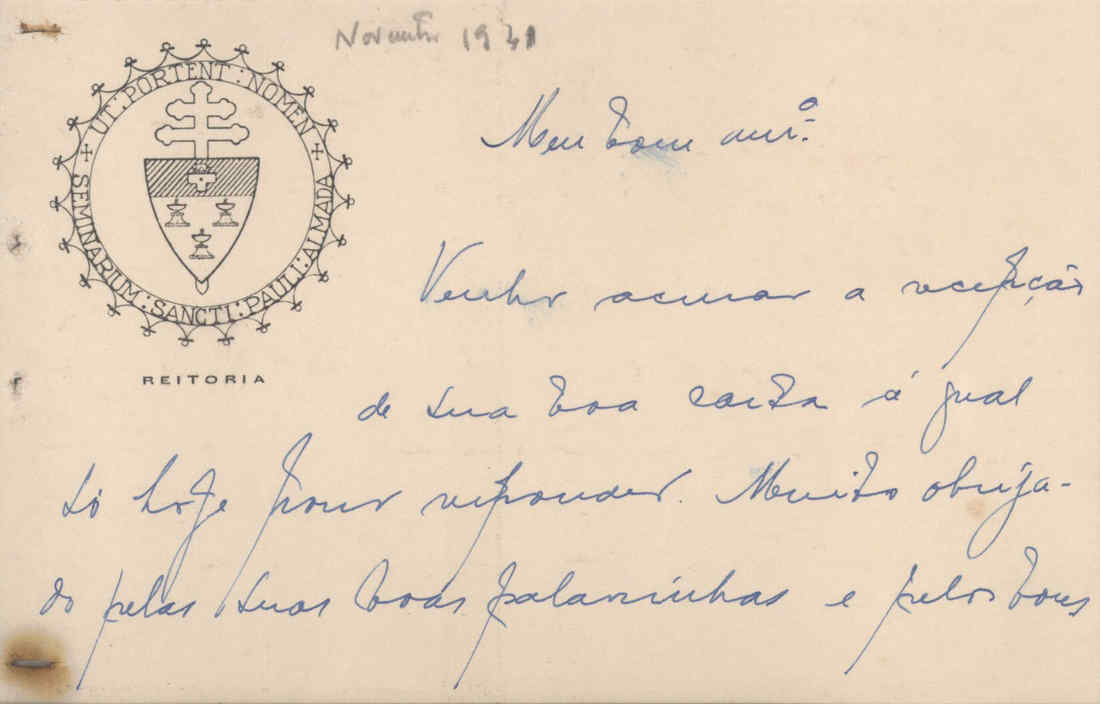 Novembro 19
UT : PORTENT : NOMEN
SEMINARIUM : SANCTI : PAULI : ALMADA
REITORIA
Meu bom am.º
Venho acusar a recepção
de sua boa carta à qual
só hoje posso responder. Muito obriga-
do pelas suas boas palavrinhas e pelos bons